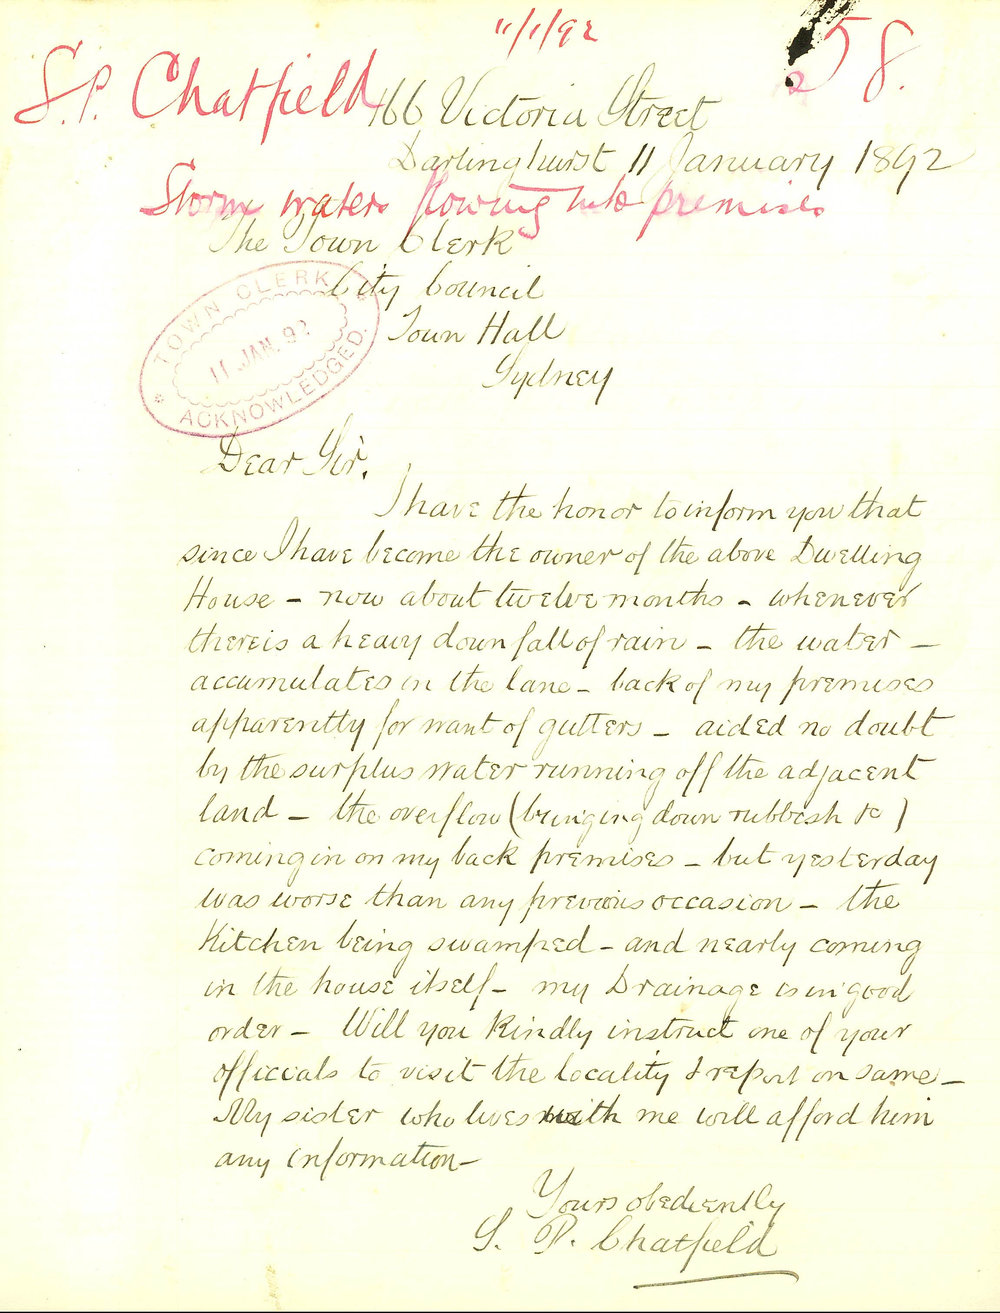 11/1/92
258.
S.P. Chatfield
466 Victoria Street
Darlinghurst 11 January 1892
Storm waters flowing into premises
The Town Clerk
City Council
Town Hall
Sydney
TOWN CLERK
11 JAN. 92
ACKNOWLEDGED.
Dear Sir.
I have the honor to inform you that
since I have become the owner of the above Dwelling
House - now about twelve months - whenever
there is a heavy downfall of rain - the water -
accumulates in the lane - back of my premises
apparently for want of gutters - aided no doubt
by the surplus water running off the adjacent
land - the overflow (bringing down rubbish &c)
coming in on my back premises - but yesterday
was worse than any previous occasion - the
Kitchen being swamped - and nearly coming
in the house itself - my Drainage is in good
order - Will you Kindly instruct one of your
officials to visit the locality & report on same -
My sister who lives with me will afford him
any information -
Yours obediently
S. P. Chatfield